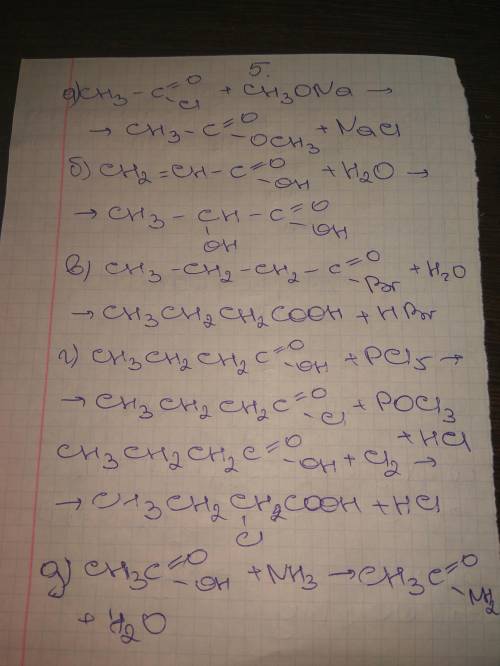 5.
а) CH3 - C =O -Cl + CH3ONa →
→ CH3 - C =O -OCH3 + NaCl
б) CH2 = CH - C =O -OH + H2O →
→ CH3 - CH - C =O -OH
OH
в) CH3 - CH2 - CH2 - C =O -Br + H2O
→ CH3CH2CH2COOH + HBr
г) CH3CH2CH2C =O -OH + PCl5 →
→ CH3CH2CH2C =O -Cl + POCl3
+ HCl
CH3CH2CH2C =O -OH + Cl2 →
→ CH3CH2CH2COOH + HCl
Cl
д) CH3C =O -OH + NH3 → CH3C =O -NH2
+ H2O